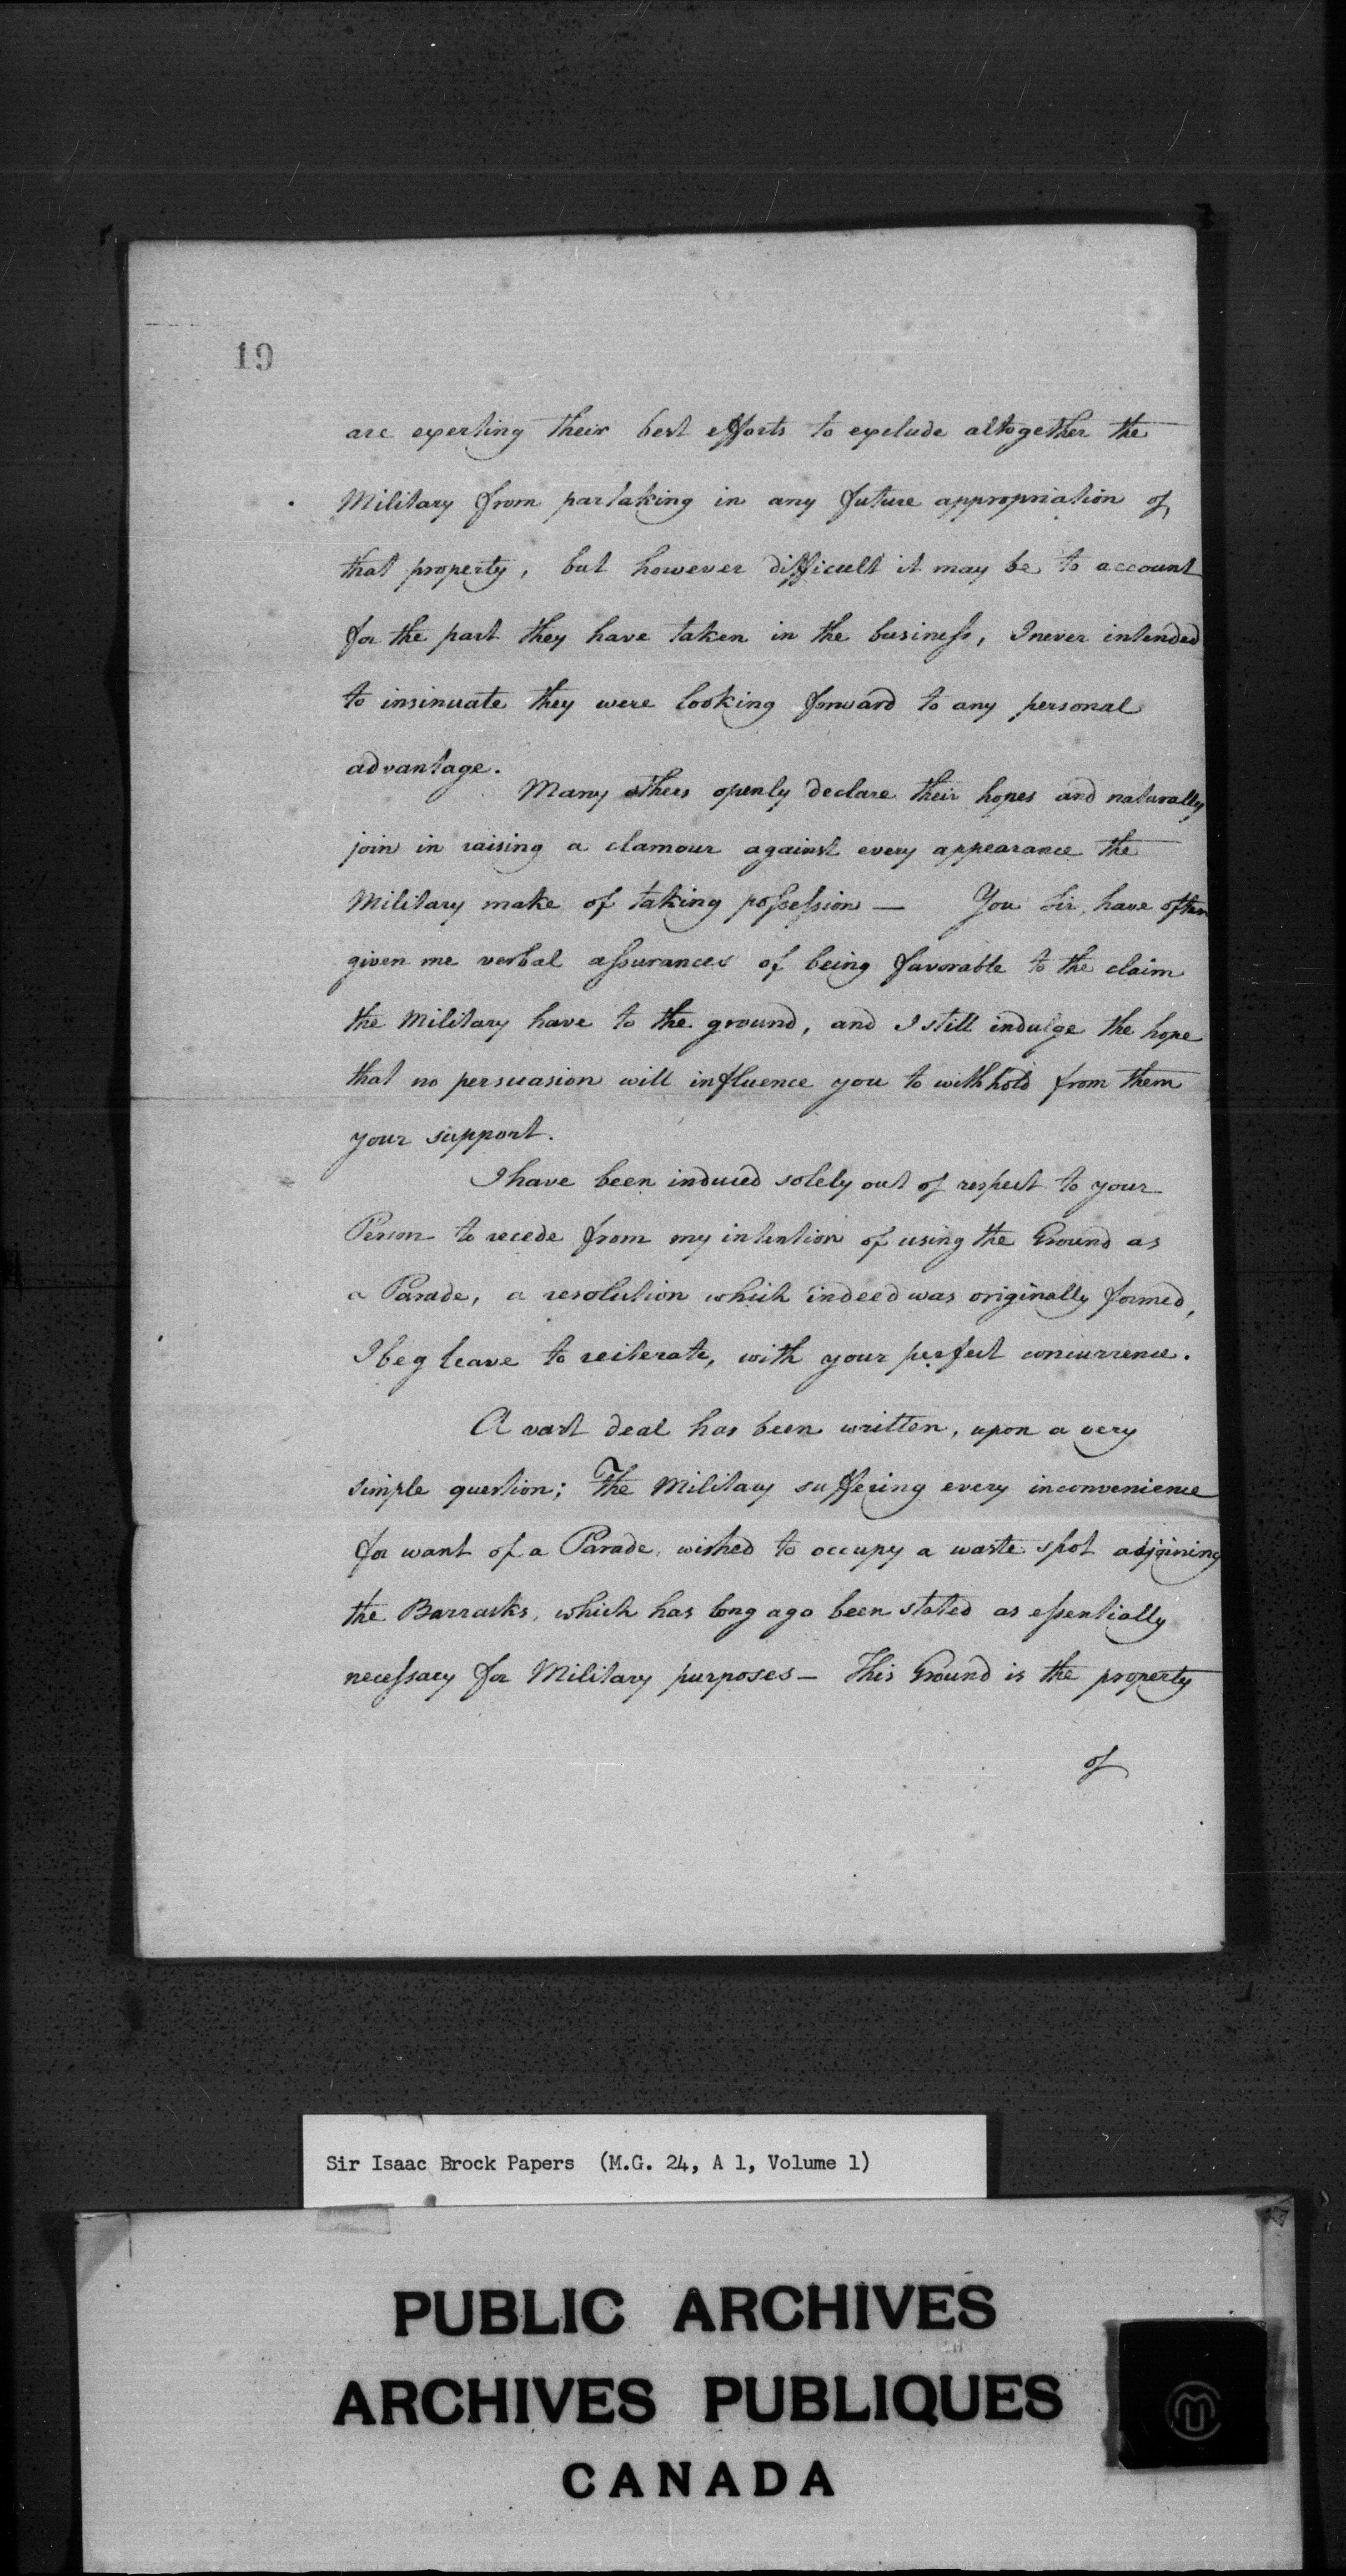 19
are experting their best efforts to explude altogether the
Military from partaking in any future appropriation of
that property, but however difficult it may be to account
for the part they have taken in the business, I never intended
to insinuate they were looking forward to any personal
advantage.
Many others openly declare their hopes and naturally
join in raising a clamour against every appearance the
Military make of taking possession — You Sir, have often
given me verbal assurances of being favorable to the claim
the Military have to the ground, and I still indulge the hope
that no persuasion will influence you to withhold from them
your support.
I have been induced solely out of respect to your
Person to recede from my intention of using the Ground as
a Parade, a resolution which indeed was originally formed,
I beg leave to reiterate, with your perfect concurrence.
A vast deal has been written, upon a very
simple question; The Military suffering every inconvenience
for want of a Parade, wished to occupy a waste spot adjoining
the Barracks, which has long ago been stated as essentially
necessary for Military purposes — This Ground is the property
of
Sir Isaac Brock Papers (M.G. 24, A 1, Volume 1)
PUBLIC ARCHIVES
ARCHIVES PUBLIQUES
CANADA